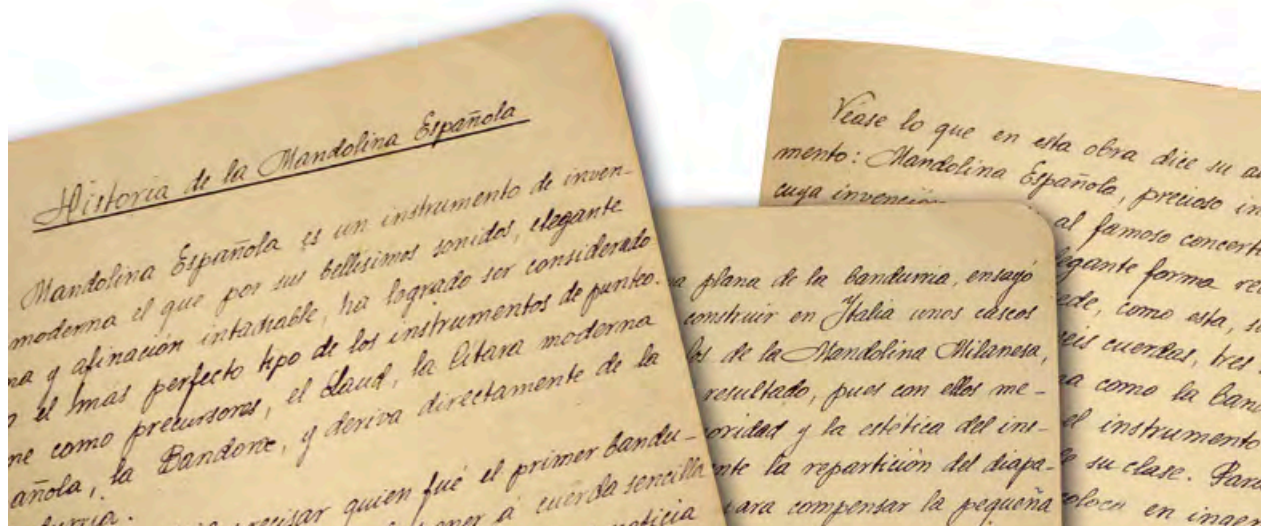 Historia de la Mandolina Española
Mandolina Española es un instrumento de inven-
moderna el que por sus bellísimos sonidos, elegante
ma y afinación intachable, ha logrado ser considerado
el más perfecto tipo de los instrumentos de punteo.
ne como precursores, el Laud, la Cítara moderna
añola, la Bandore, y deriva directamente de la
durria.
precisar quien fué el primer bandu-
poner á cuerda sencilla
noticia
plana de la bandurria, ensayó
construir en Italia unos cascos
los de la Mandolina Milanesa,
resultado, pues con ellos me-
oridad y la estética del ins-
nte la repartición del diapa-
para compensar la pequeña
Véase lo que en esta obra dice su au
mento: Mandolina Española, precioso in
cuya invención al famoso concert
egante forma re
ede, como esta, s
seis cuerdas, tres
a como la ban
el instrumento
su clase. Para
coloca en inger